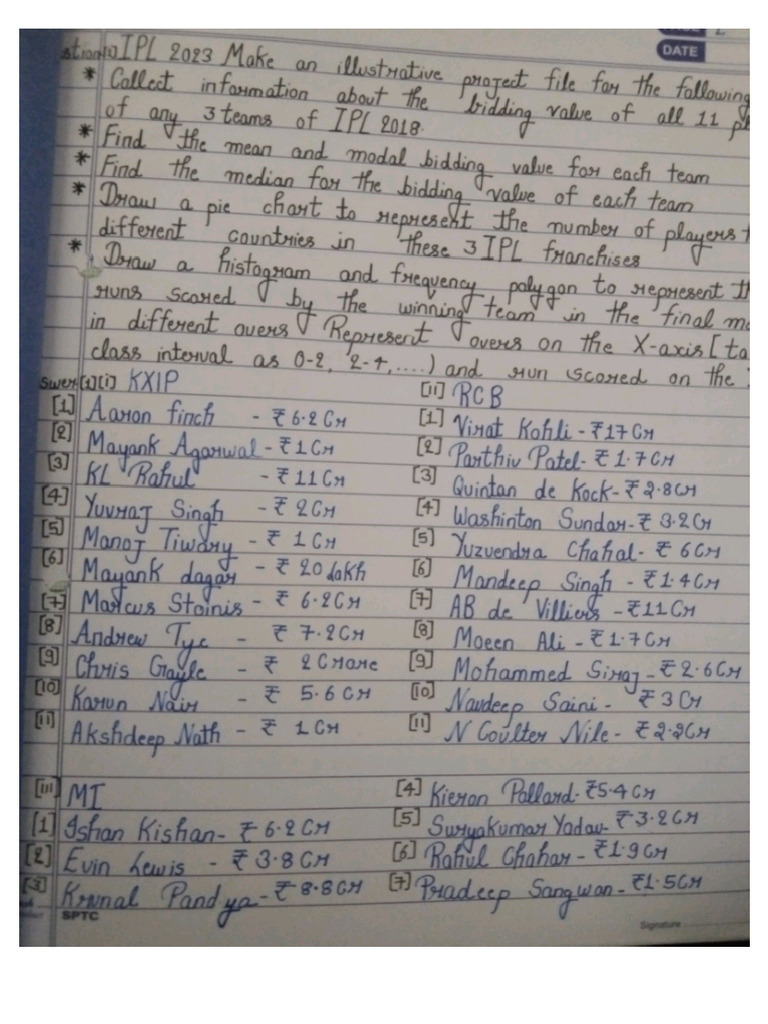 DATE
IPL 2023 Make an illustrative project file for the following
* Collect information about the bidding value of all 11 pl
of any 3 teams of IPL 2018.
* Find the mean and modal bidding value for each team
* Find the median for the bidding value of each team
* Draw a pie chart to represent the number of players
different countries in these 3 IPL franchises
* Draw a histogram and frequency polygon to represent th
runs scored by the winning team in the final ma
in different overs Represent overs on the X-axis [ta
class interval as 0-2, 2-4, ....) and run scored on the
swer[1][i] KXIP
[1] Aaron finch - ₹ 6.2 Cr
[2] Mayank Agarwal - ₹1 Cr
[3] KL Rahul - ₹ 11 Cr
[4] Yuvraj Singh - ₹ 2 Cr
[5] Manoj Tiwary - ₹ 1 Cr
[6] Mayank dagar - ₹ 20 lakh
[7] Marcus Stoinis - ₹ 6.2 Cr
[8] Andrew Tye - ₹ 7.2 Cr
[9] Chris Gayle - ₹ 2 Crore
[10] Karun Nair - ₹ 5.6 Cr
[11] Akshdeep Nath - ₹ 1 Cr
[ii] RCB
[1] Virat Kohli - ₹17 Cr
[2] Parthiv Patel - ₹ 1.7 Cr
[3] Quintan de Kock - ₹ 2.8 Cr
[4] Washinton Sundar - ₹ 3.2 Cr
[5] Yuzvendra Chahal - ₹ 6 Cr
[6] Mandeep Singh - ₹1.4 Cr
[7] AB de Villiers - ₹11 Cr
[8] Moeen Ali - ₹1.7 Cr
[9] Mohammed Siraj - ₹ 2.6 Cr
[10] Navdeep Saini - ₹ 3 Cr
[11] N Coulter Nile - ₹2.2 Cr
[iii] MI
[1] Ishan Kishan - ₹ 6.2 Cr
[2] Evin Lewis - ₹ 3.8 Cr
[3] Krunal Pandya - ₹ 8.8 Cr
[4] Kieron Pallard - ₹5.4 Cr
[5] Suryakumar Yadav - ₹ 3.2 Cr
[6] Rahul Chahar - ₹1.9 Cr
[7] Pradeep Sangwan - ₹1.5 Cr
SPTC
Signature